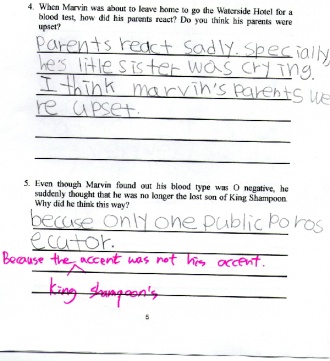 4. When Marvin was about to leave home to go the Waterside Hotel for a
blood test, how did his parents react? Do you think his parents were
upset?
Parents react sadly. Specially
he's litle sister was crying.
I think marvin's parents we
re upset.
5. Even though Marvin found out his blood type was O negative, he
suddenly thought that he was no longer the lost son of King Shampoon.
Why did he think this way?
becuse only one public poros
ecutor.
Because the accent was not his accent.
king shampoon's
5